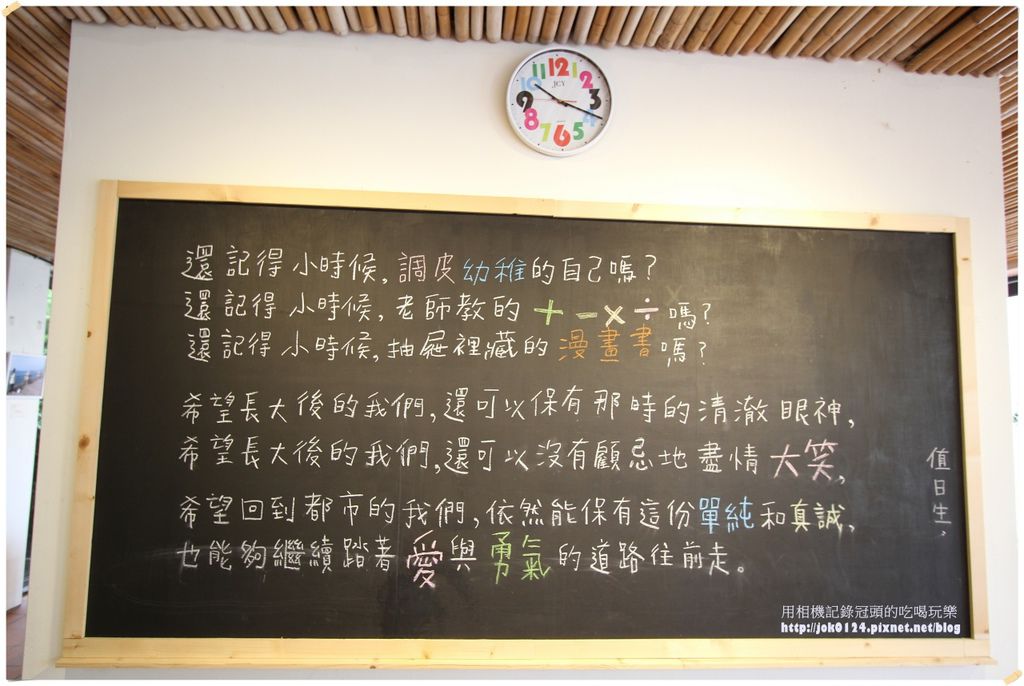 12
11
1
10
2
JCY
9
3
8
4
7
5
6
還記得小時候,調皮幼稚的自己嗎?
還記得小時候,老師教的+-×÷嗎?
還記得小時候,抽屜裡藏的漫畫書嗎?
希望長大後的我們,還可以保有那時的清澈眼神,
希望長大後的我們,還可以沒有顧忌地盡情大笑,
希望回到都市的我們,依然能保有這份單純和真誠,
也能夠繼續踏著愛與勇氣的道路往前走。
值日生,
用相機記錄冠頭的吃喝玩樂
http://jok0124.pixnet.net/blog